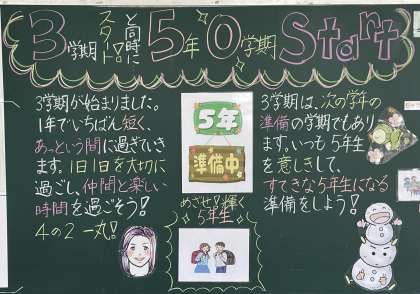 3学期
と同時に
スタート!
5年0学期 Start
3学期が始まりました。
1年でいちばん短く、
あっという間に過ぎていき
ます。1日1日を大切に
過ごし、仲間と楽しい
時間を過ごそう!
4の2 一丸!
5年
準備中
めざせ!輝く
5年生
3学期は、次の学年の
準備の学期でもあり
ます。いつも5年生
を意しきして、
すてきな5年生になる
準備をしよう!